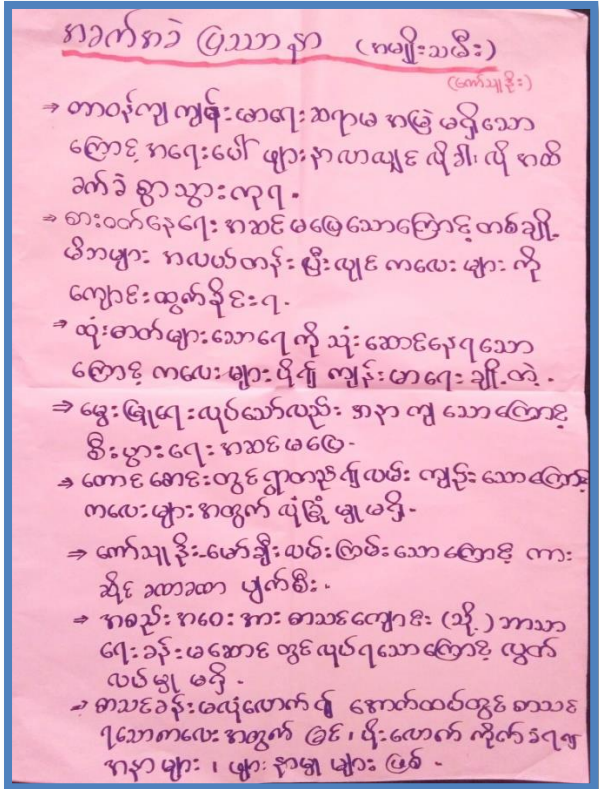 အခက်အခဲ ပြဿာနာ (အမျိုးသမီး)
(ကော်သူဒိုး)
⇒ တာဝန်ကျ ကျွန်းမာရေးဆရာမ အမြဲ မရှိသော
ကြောင့် အရေးပေါ် ဖျားနာလာလျှင် လိုဒါးလို အထိ
ခက်ခဲ စွာသွားကုရ.
⇒ စားဝတ်နေရေး အဆင်မပြေသောကြောင့် တစ်ချို့
မိဘများ အလယ်တန်းပြီးလျှင် ကလေးများ ကို
ကျောင်းထွက်ခိုင်းရ.
⇒ ထုံးဓာတ်များသောရေ ကို သုံးဆောင်နေရသော
ကြောင့် ကလေးများ ပို၍ ကျန်းမာရေး ချို့တဲ့.
⇒ မွေးမြူရေးလုပ်သော်လည်း အနာကျ သောကြောင့်
စီးပွားရေး အဆင်မပြေ.
⇒ တောင်စောင်းတွင်ရွာတည်၍လမ်း ကျဉ်းသောကြောင့်
ကလေးများအတွက် လုံခြုံမှု မရှိ.
⇒ ကော်သူဒိုး-မော်ချီးလမ်းကြမ်းသောကြောင့် ကား
ဆိုင် ခဏခဏ ပျက်စီး.
⇒ အစည်းအဝေးအား စာသင်ကျောင်း (သို့) ဘာသာ
ရေးခန်းမဆောင် တွင်လုပ်ရသောကြောင့် လွတ်
လပ်မှု မရှိ.
⇒ စာသင်ခန်းမလုံလောက်၍ အောက်ထပ်တွင် စာသင်
ရသောကလေးအတွက် ခြင်၊ ပိုးလောက် ကိုက်ခံရ၍
အနာများ၊ ဖျားနာမှု များ ဖြစ်.